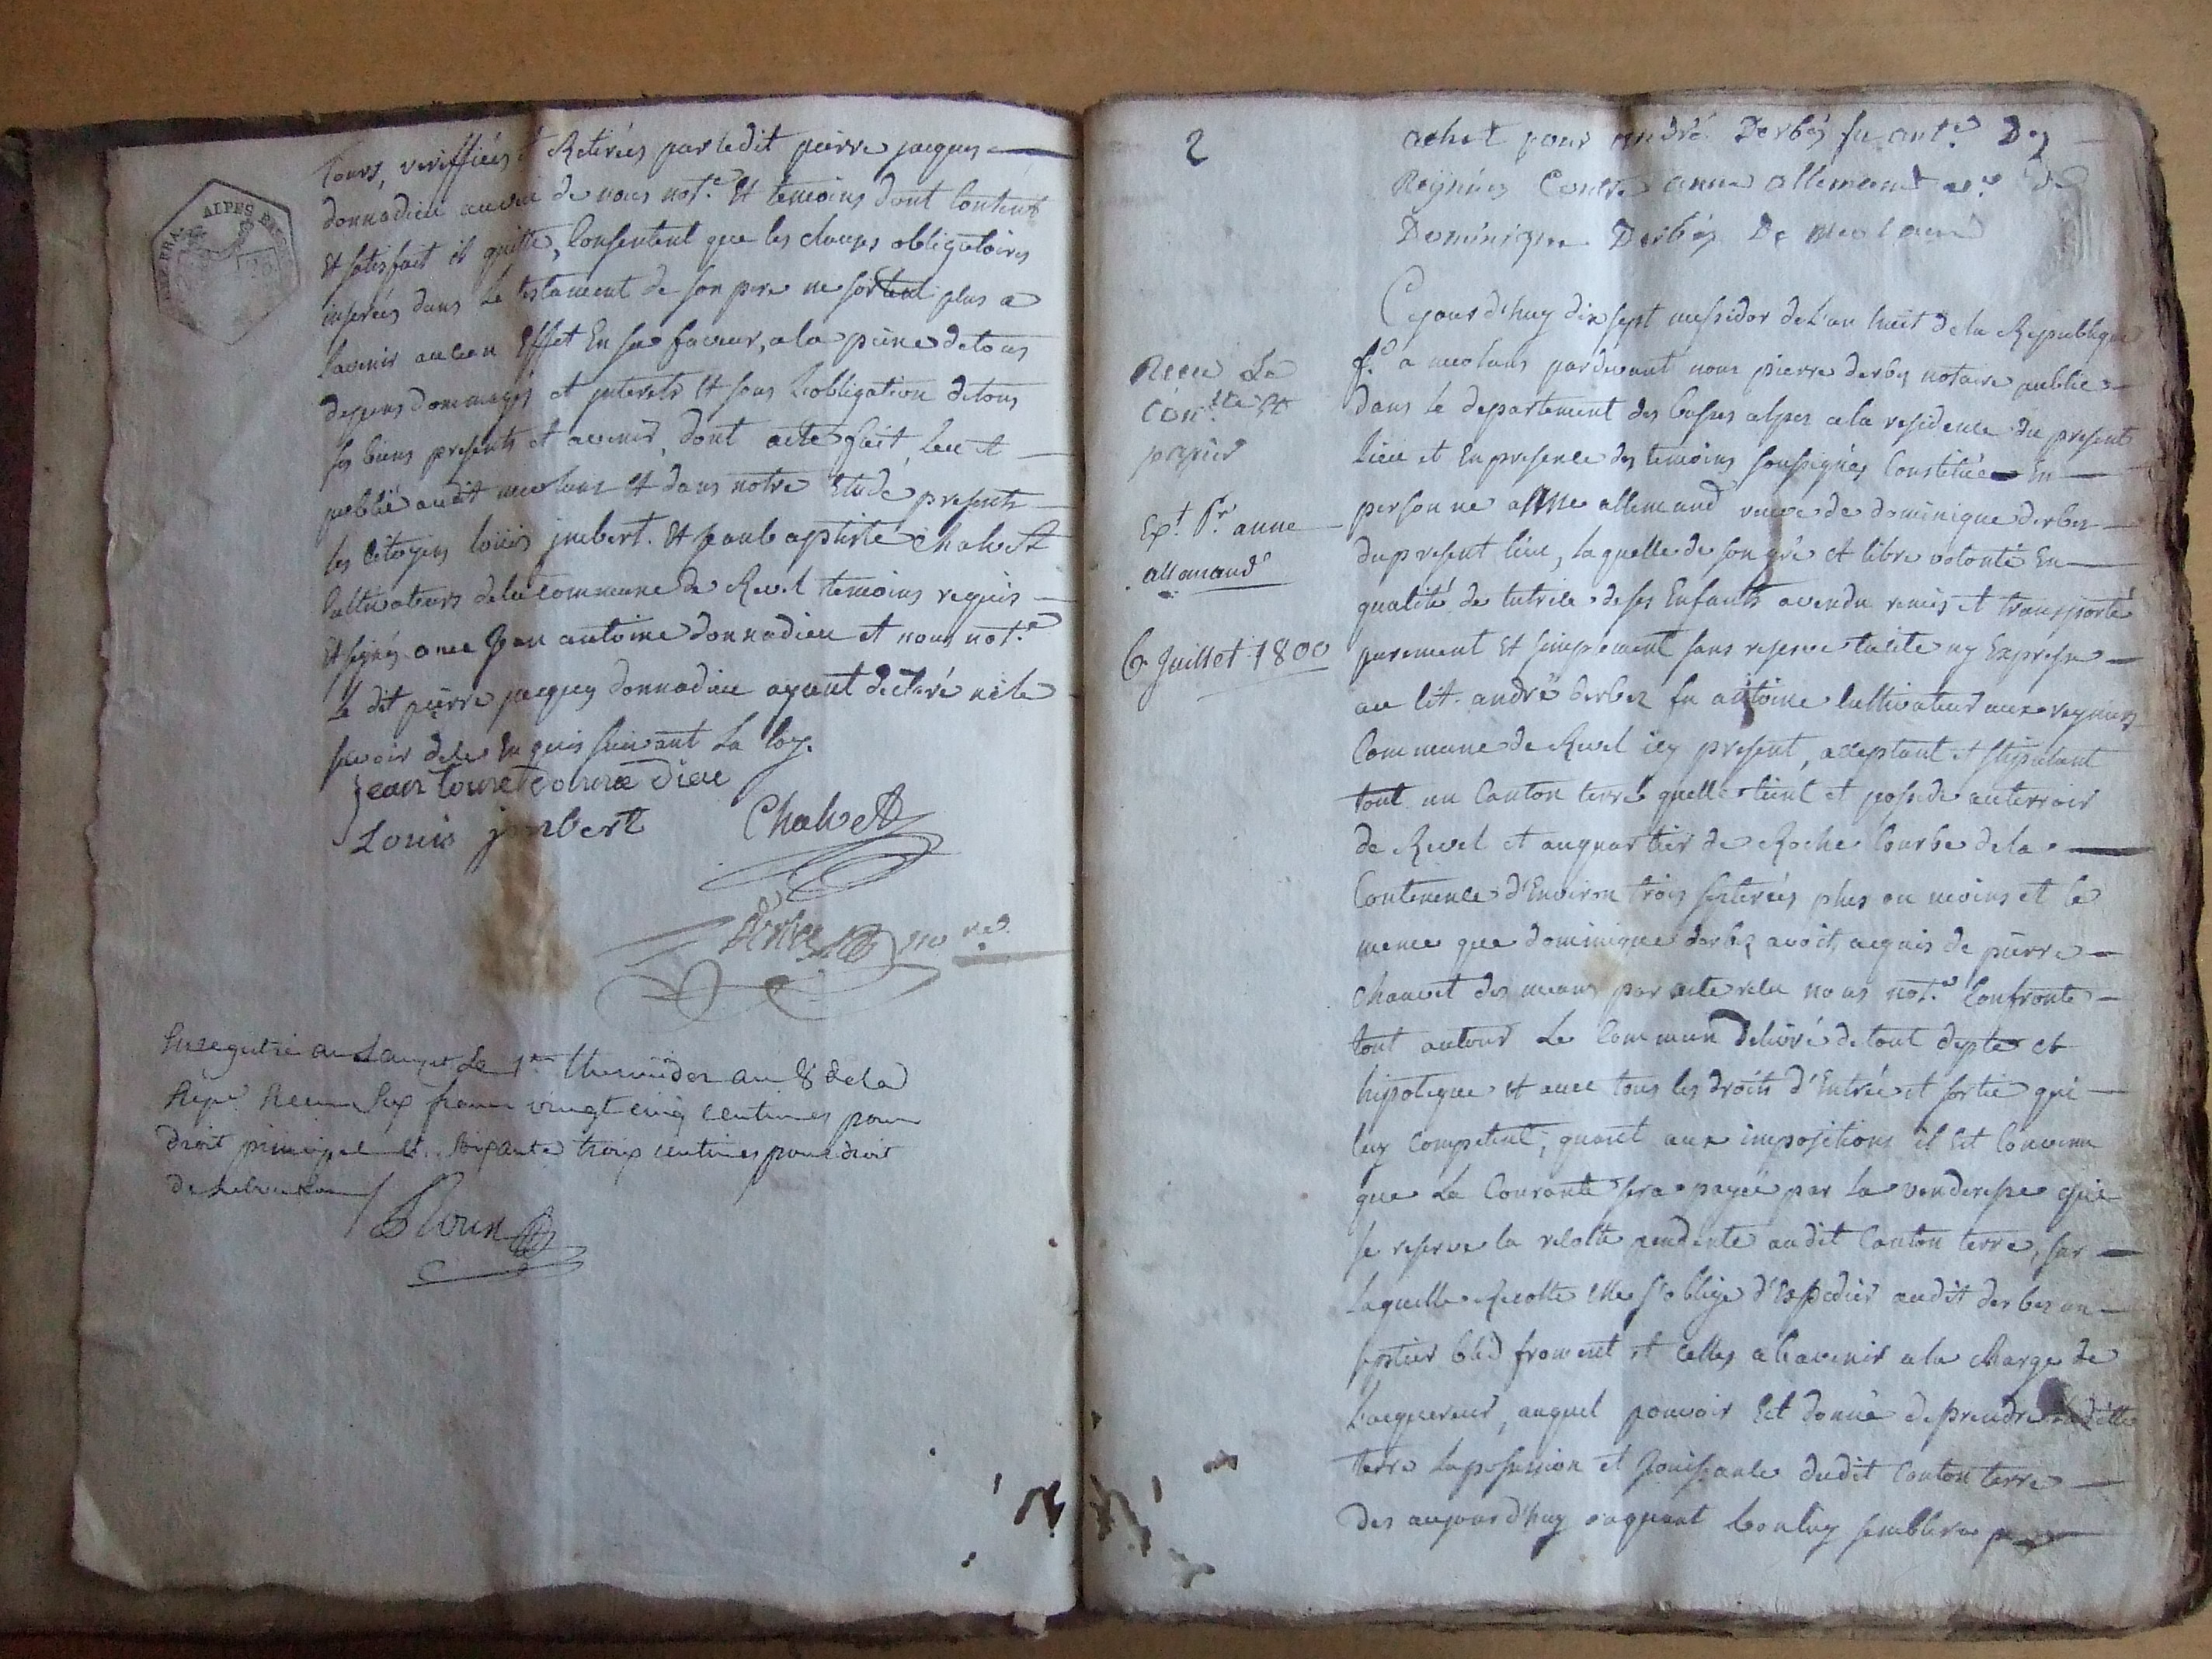 tours, veriffiées et Retirées par ledit pierre jacques
donnadieu au vû de nous not.e Et temoins dont Content
Et satisfait il quitte, Consentent que les clauses obligatoires
inserées dans Le testament de son pere ne sortent plus a
Lavenir aucun Effet En sa faveur, a la peine de tous
depens dommages et interets Et sous Lobligation de tous
ses biens presents et avenir, dont acte fait, leu et
publié audit meolans Et dans notre Etude presents
les Citoyens louis jmbert. Et jean baptiste Chalvet
Cultivateurs de la commune de Revel temoins requis
Et signés avec Jean antoine donnadieu et nous not.e
Le dit pierre jacques donnadieu ayant declaré ne le
savoir de le Enquis suivant La loy.
jean toune donnadieu
Louis jmbert Chalvet
Derbez no.re
Enregistré au Lauzet Le 1er thermidor an 8 de la
Rep.e Recu Six francs vingt cinq centimes pour
droit principal et Soixante trois centimes pour droit
de
ALPES
2
achet pour andré Derbés fu ant.e Des
Reynies Contre anne allemand v.e de
Dominique Derbés De meolans
Cejourd'huy dix sept messidor de L'an huit de la Republique
f.e a meolans pardevant nous pierre derbes notaire public
dans le departement des basses alpes a la residence du present
lieu et En presence des temoins soussignés Constituée En
personne anne allemand veuve de dominique derbes
du present lieu, laquelle de son gré et libre volonté En
qualité de tutrice de ses Enfants a vendu remis et transporté
purement Et simplement sans reserve tacite ny Expresse
au Cit. andré derbez fu antoine Cultivateur aux reyniers
Commune de Revel icy present, acceptant et stipulant
tout un Canton terre quelle tient et possede au terroir
de Revel et au quartier de Roche Courbe de la
Contenence d'Environ trois sesterées plus ou moins et le
meme que dominique derbez avoit acquis de pierre
chauvet des means par acte relu nous not.e Confronte
tout autour Le Commun delivré de tout depte et
hipoteque Et avec tous les droits d'Entrée et sortie qui
luy Competent, quant aux impositions il Est Convenu
que La Courante sera payée par La venderesse qui
se reserve la recolte pendente audit Canton terre, sur
Laquelle Recolte Elle s'oblige d'Expedier audit derbez un
septier bled froment et celles a Lavenir a la charge de
Lacquereur, auquel pouvoir Est donné de prendre
terre La possession et jouissance dudit Canton terre
Des aujourd'huy et quant bon luy semblera
Receu Le
Con.lle Et
papier
Exp.t P.r anne
allemand
6 Juillet 1800